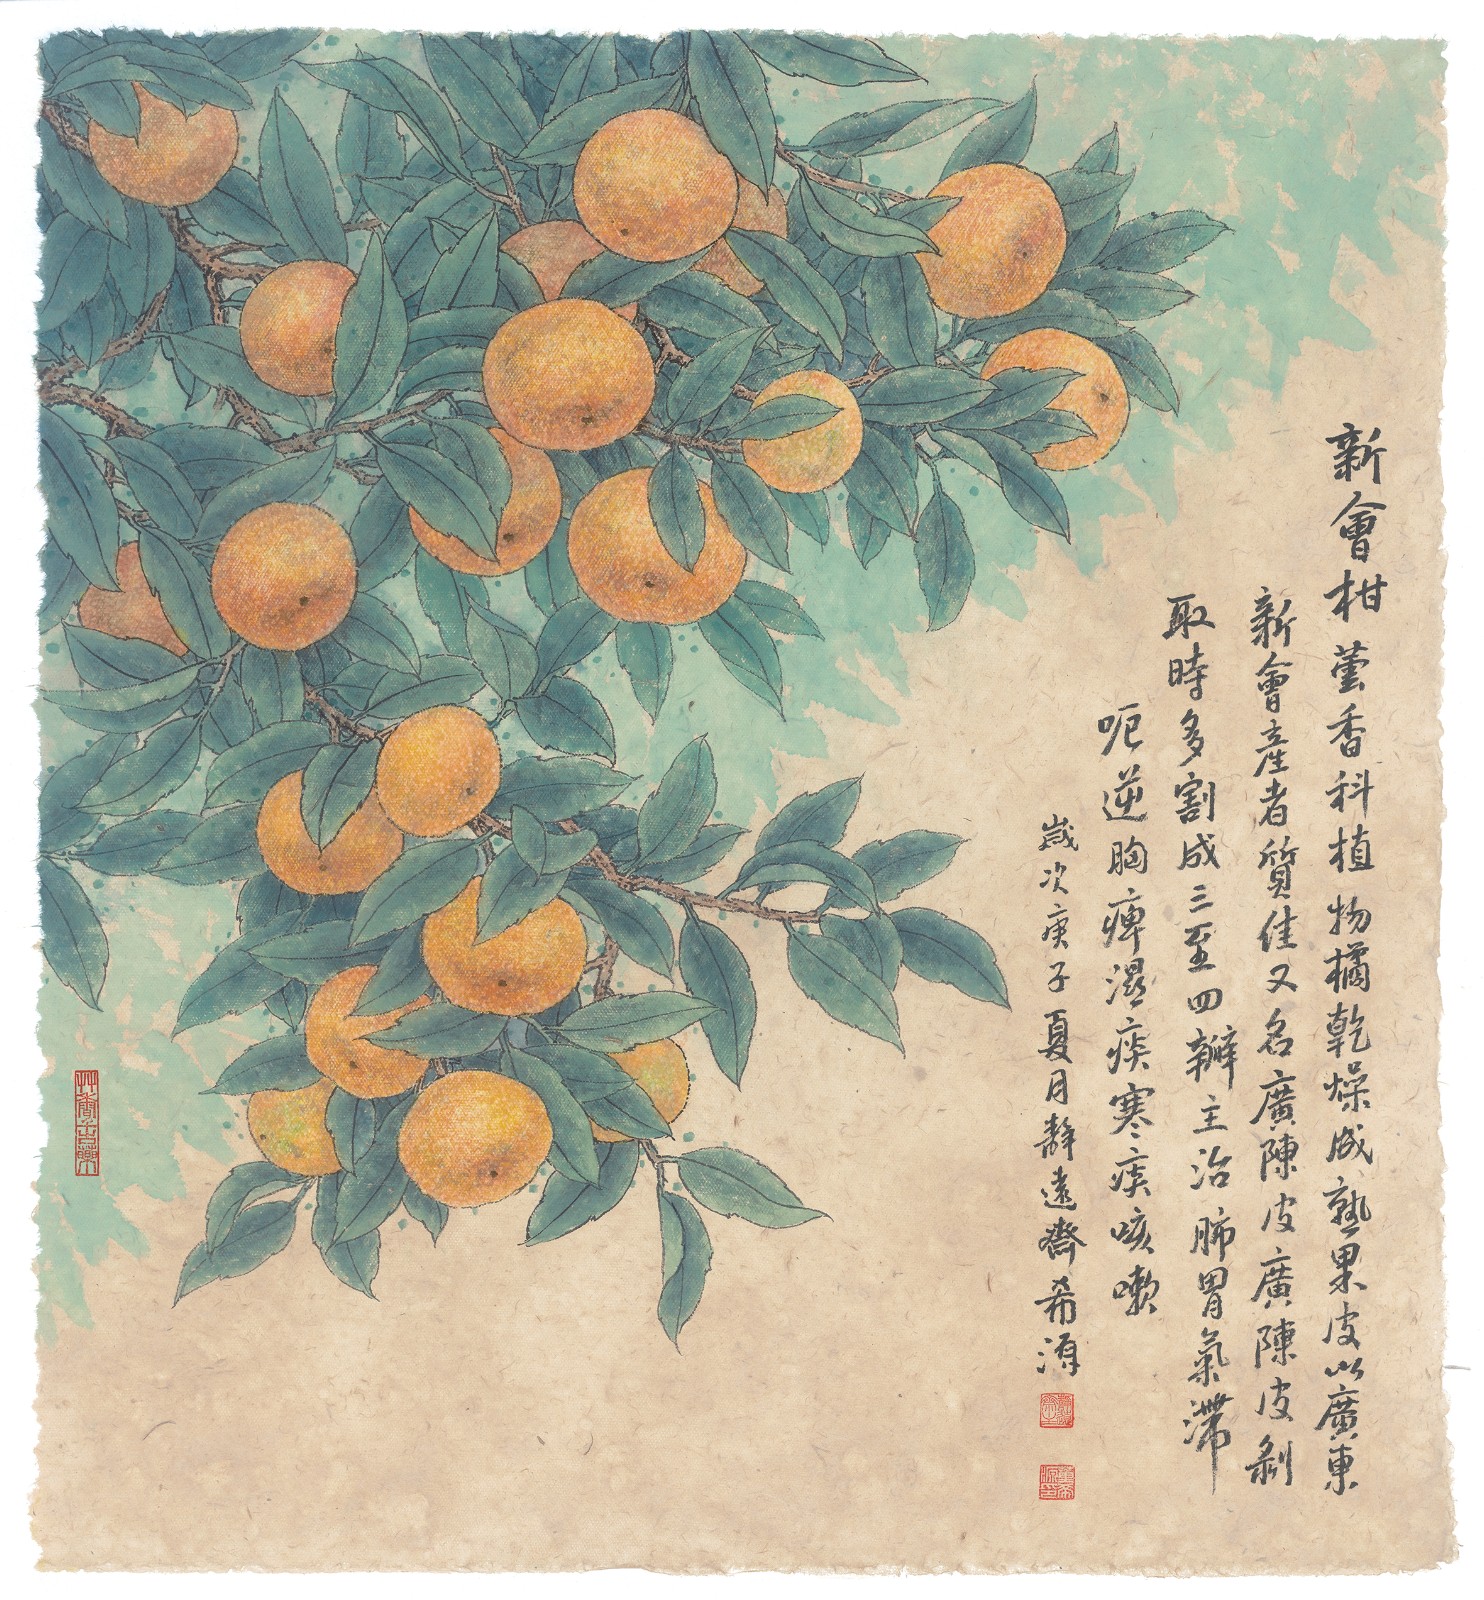 新會柑 蕓香科植物橘乾燥成熟果皮以廣東
新會產者質佳又名廣陳皮廣陳皮剝
取時多割成三至四瓣主治肺胃氣滯
呃逆胸痺濕痰寒痰咳嗽
歲次庚子夏月靜遠齋希源